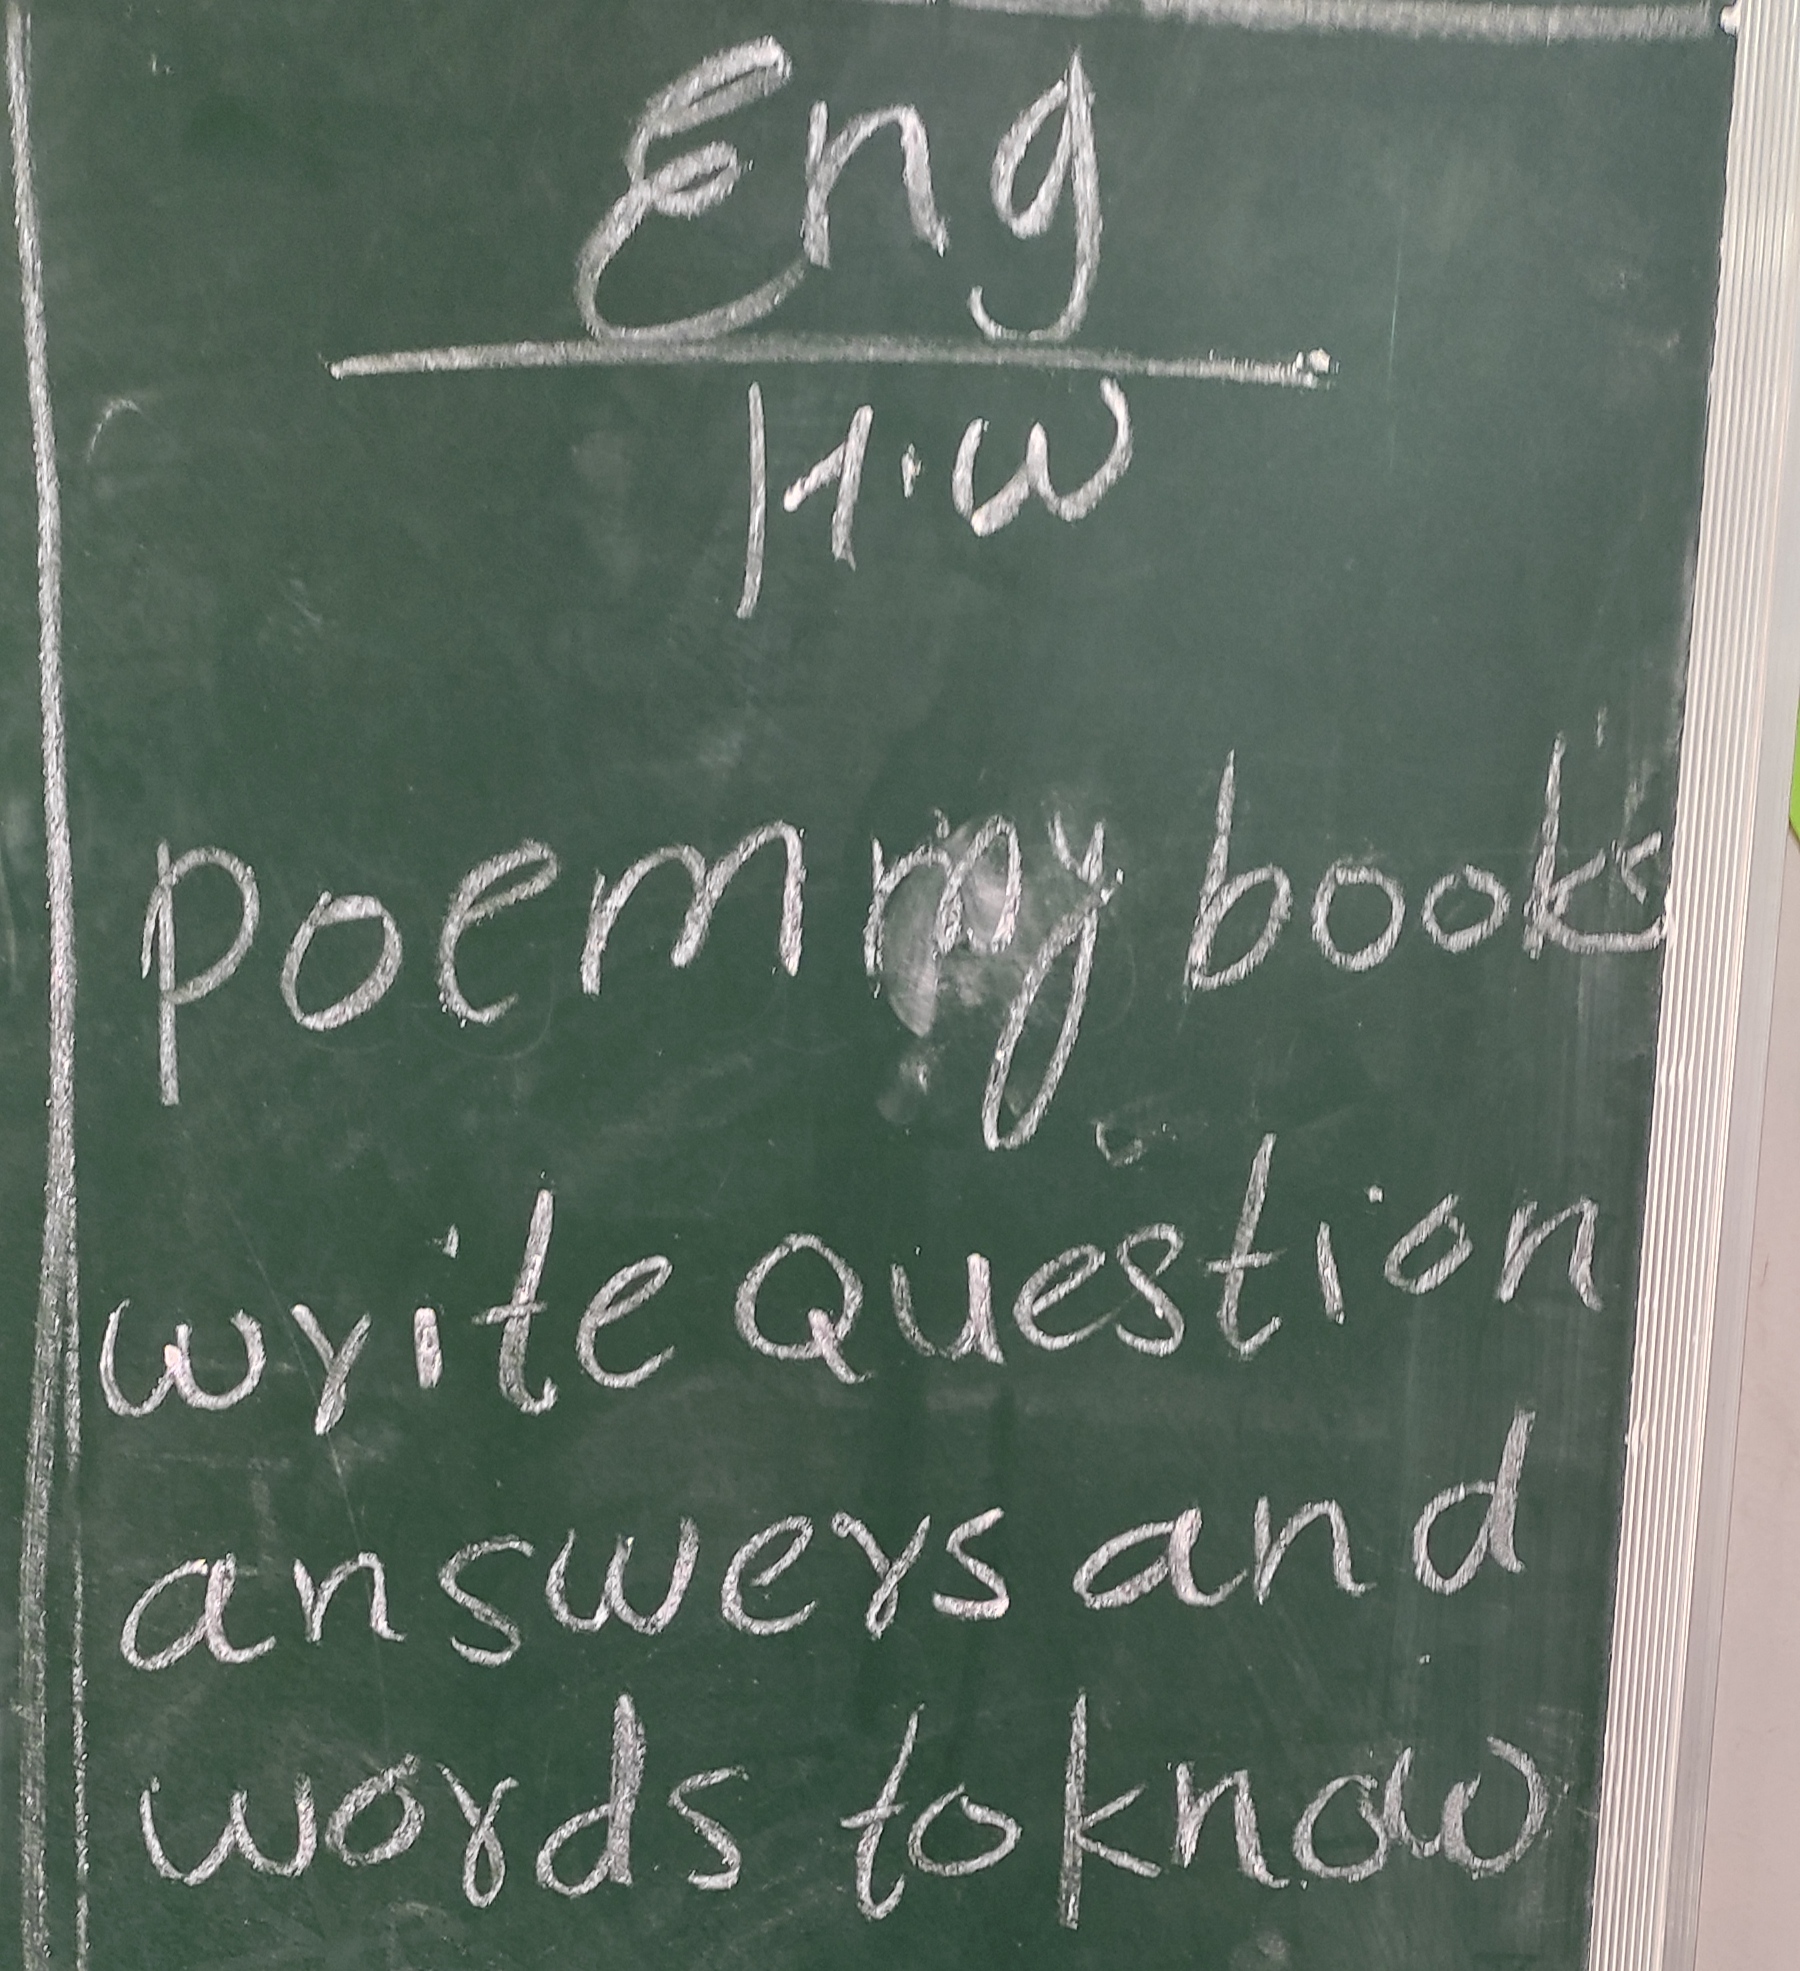 Eng
H.W
poem my book
write Question
answers and
words to know